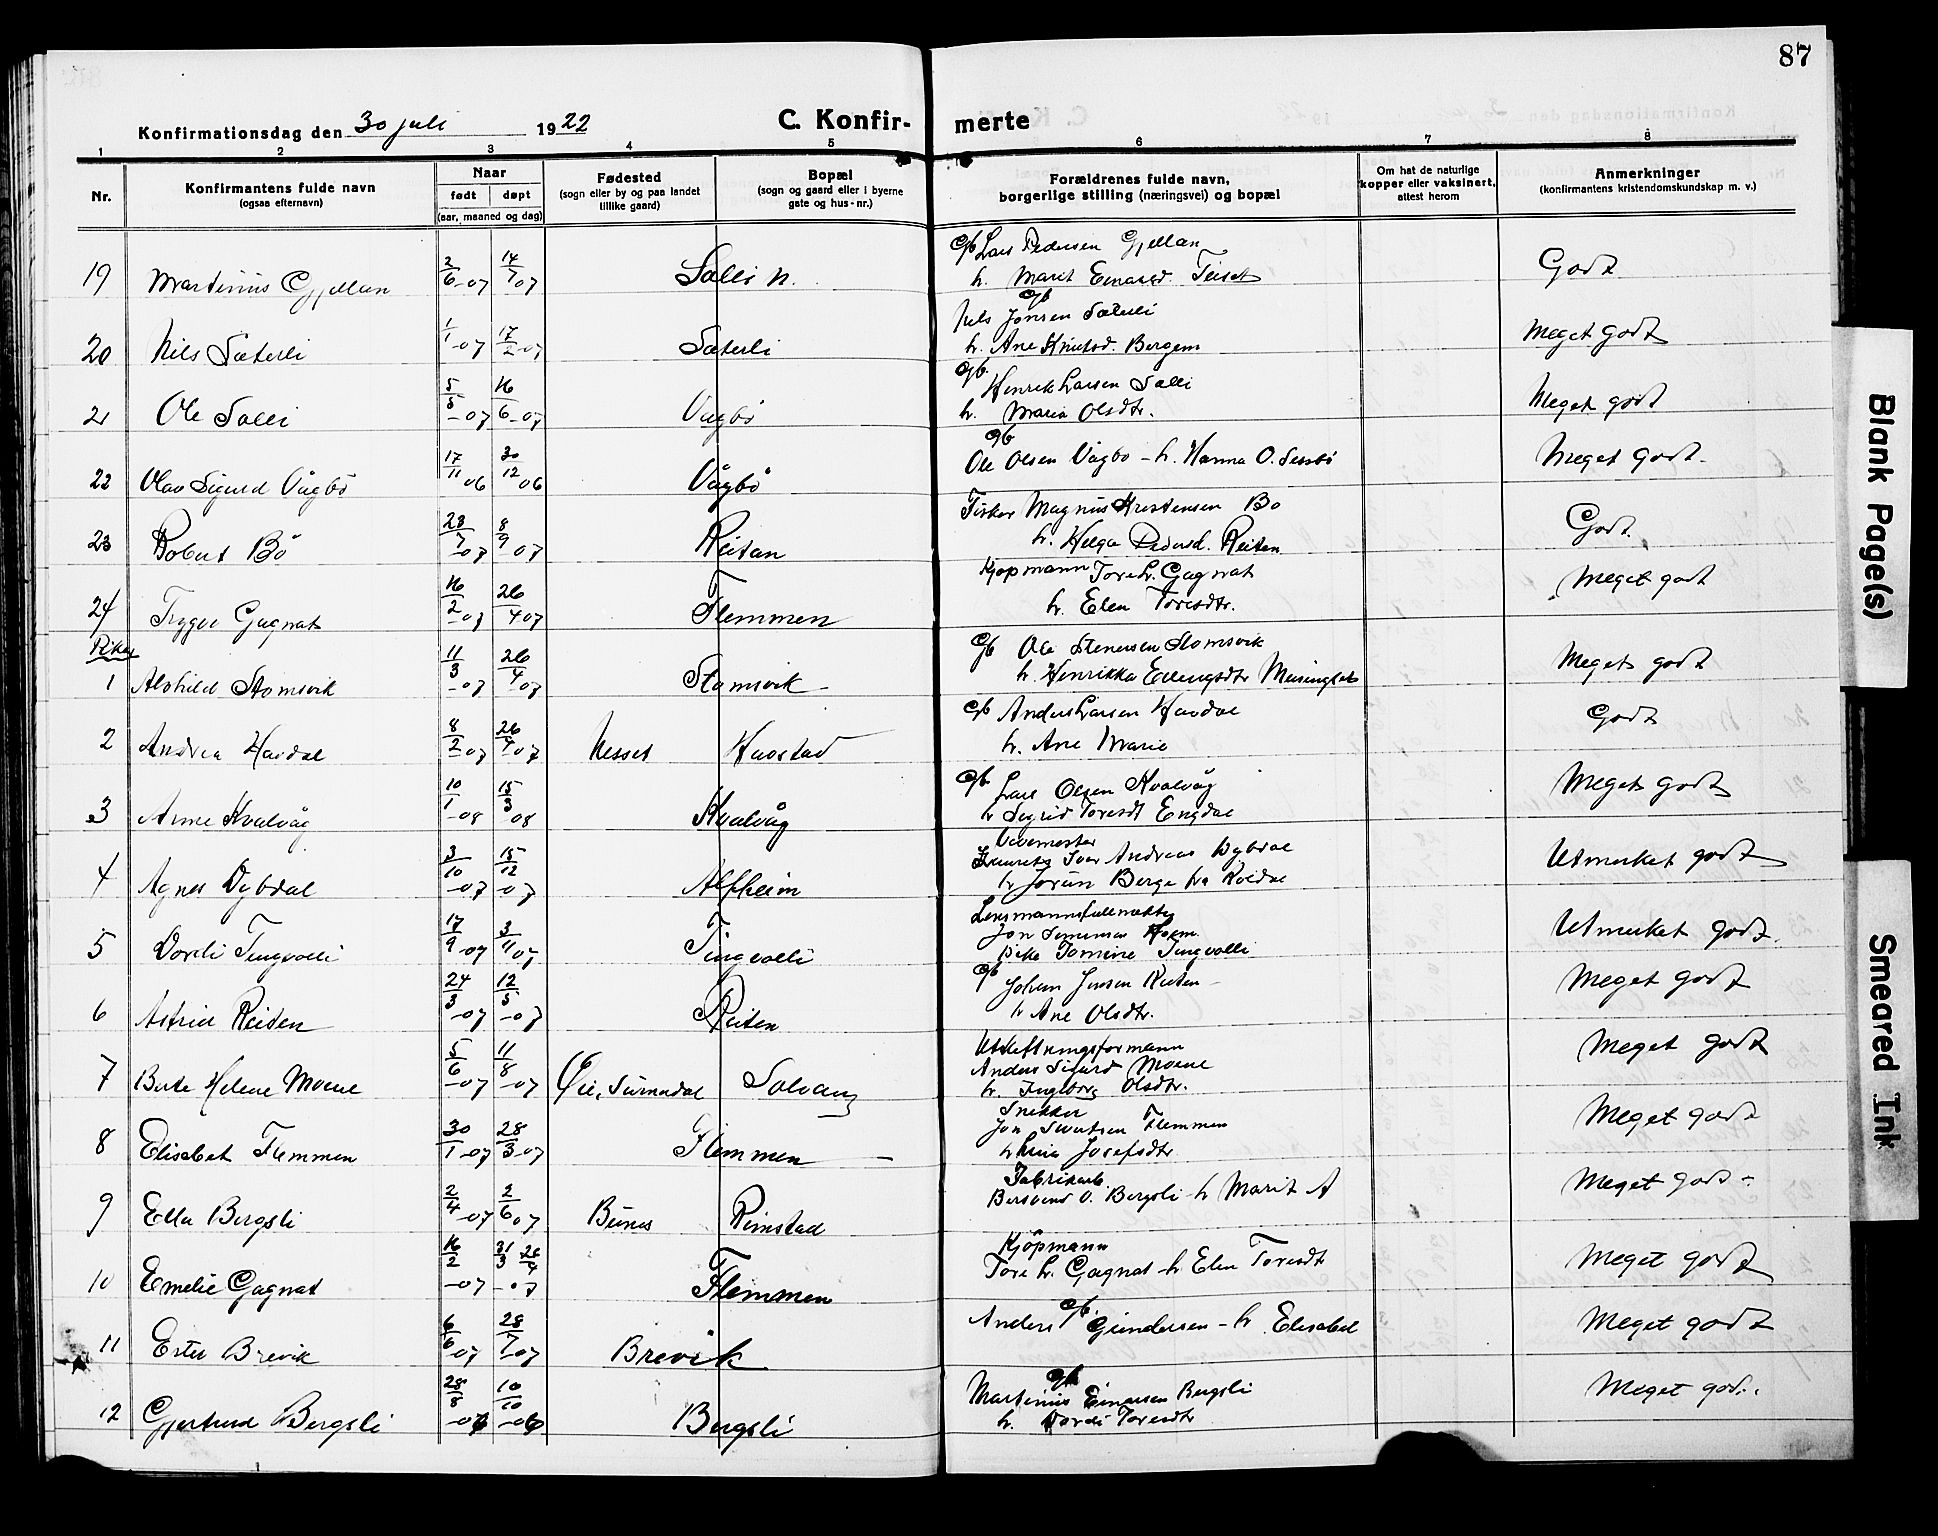 87
Konfirmationsdag den 30 juli 1922 C. Konfir- merte
1 2 3 4 5 6 7 8
Nr. Konfirmantens fulde navn (ogsaa efternavn) Naar født døpt (aar, maaned og dag) Fødested (sogn eller by og paa landet tillike gaard) Bopæl (sogn og gaard eller i byerne gate og hus-nr.) Forældrenes fulde navn, borgerlige stilling (næringsvei) og bopæl Om hat de naturlige kopper eller vaksinert, attest herom Anmerkninger (konfirmantens kristendomskundskap m. v.)
19 Martinius Gjellan 2/6-07 14/7 07 Salli n. G/b Lars Pedersen Gjellan h. Marit Einarsd. Teiset Godt
20 Nils Sæterli 1/1-07 17/2-07 Sæterli G/b Nils Jonsen Sæterli h. Ane Knutsd. Bergem Meget godt
21 Ole Salli 5/5-07 16/6-07 Vågbö G/b. Henrik Larsen Salli h. Maria Olsdtr. Meget godt
22 Olav Sigurd Vågbö 17/11 06 30/12 06 Vågbö G/b Ole Olsen Vågbö - h. Hanna O. Meget godt.
23 Robert Bö 28/7-07 8/9 07 Reitan Fisker Magnus Kristensen Bö h. Helga Pedersd. Reiten Godt.
24 Trygve Gagnat 16/2-07 26/4 07 Flemmen Kjøpmann Tore L. Gagnat h. Elen Toresdtr. Meget godt
Piker
1 Alvhild Stomsvik 11/3-07 26/4 07 Stomsvik - G/b Ole Stenersen Stomsvik h. Henrikka Erlingsdtr Meisingset Meget godt
2 Andrea Havdal 8/2-07 26/4-07 Nesset Havstad G/b Anders Larsen Havdal h. Ane Marie Godt
3 Anne Kvalvåg 10/1-08 15/3 08 Kvalvåg G/b Lars Olsen Kvalvåg h Sigrid Toresdt Engdal Meget godt
4 Agnes Dybdal 3/10-07 15/12-07 Alfheim Vevemester Iver Andreas Dybdal h Jorun Berge fra Meget Utmerket godt
5 Dordi Tingvolli 17/9-07 3/11 07 Tingvolli Lensmannsfullmektig Jon Simensen Holm Pike Tomine Tingvolli Utmerket godt.
6 Astrid Reiten 24/3-07 12/5-07 Reiten G/b Johan Jensen Reiten - h Ane Olsdtr. Meget godt
7 Berte Helene Moene 5/6-07 11/8-07 Øie, Surnadal Solvang Utskiftningsformann Anders Sigurd Moene h. Ingeborg Olsdtr. Meget godt
8 Elisabet Flemmen 30/1-07 28/3-07 Flemmen - Snekker Jon Sivertsen Flemmen h Lina Josefsdtr. Meget godt
9 Ella Bergsli 2/4-07 2/6 07 Bunes Rimstad Fabrikarb. Bersvend O. Bergsli - h Marit A Meget godt -
10 Emelie Gagnat 16/2-07 31/3 26/4-07 Flemmen Kjöpmann Tore L. Gagnat - h Elen Toresdt Meget godt
11 Ester Brevik 6/6 07 28/7-07 Brevik G/b. Anders Gundersen - h. Elisabet Meget godt
12 Gjertrud Bergsli 28/8-06 10/10-06 Bergsli G/b Martinius Einarsen Bergsli h. Dordi Toresdtr Meget godt.
Blank Page(s)
Smeared Ink